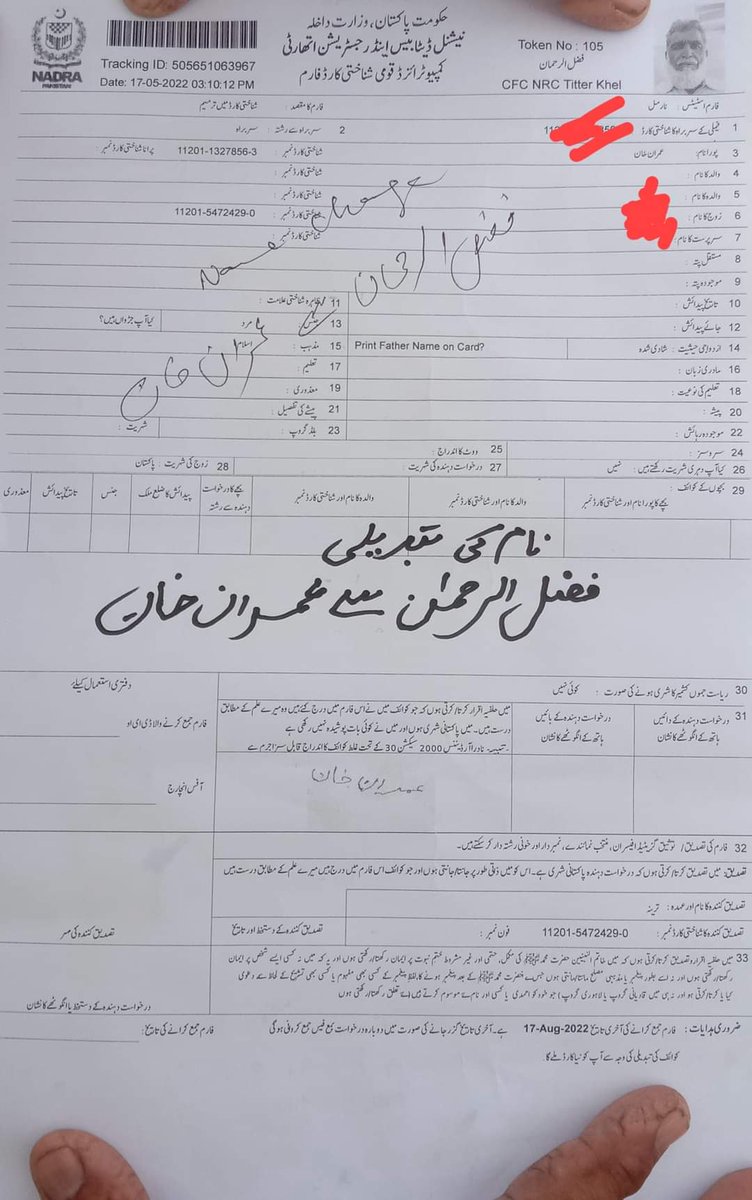 حکومت پاکستان، وزارت داخلہ
نیشنل ڈیٹابیس اینڈ رجسٹریشن اتھارٹی
کمپیوٹرائزڈ قومی شناختی کارڈ فارم
NADRA
PAKISTAN
Tracking ID: 505651063967
Date: 17-05-2022 03:10:12 PM
Token No : 105
فضل الرحمان
CFC NRC Titter Khel
فارم اسٹیٹس : نارمل فارم کا مقصد : شناختی کارڈ میں ترمیم
1 فیملی کے سربراہ کا شناختی کارڈ 2 سربراہ سے رشتہ : سربراہ
3 پورا نام : عمران خان شناختی کارڈ نمبر : 11201-1327856-3 پرانا شناختی کارڈ نمبر
4 والد کا نام : شناختی کارڈ نمبر :
5 والدہ کا نام : شناختی کارڈ نمبر :
6 زوج کا نام : شناختی کارڈ نمبر : 11201-5472429-0
7 سرپرست کا نام : شناختی کارڈ نمبر :
Name Change
فضل الرحمان
سے
عمران خان
8 مستقل پتہ :
9 موجودہ پتہ :
10 تاریخ پیدائش : 11 ظاہرہ شناختی علامت :
12 جائے پیدائش : 13 جنس : مرد کیا آپ جڑواں ہیں؟
14 ازدواجی حیثیت : شادی شدہ Print Father Name on Card? 15 مذہب : اسلام
16 مادری زبان : 17 تعلیم :
18 تعلیم کی نوعیت : 19 معذوری :
20 پیشہ : 21 پیشے کی تفصیل :
22 موجودہ رہائش : 23 بلڈ گروپ : شہریت :
24 سروسز : 25 ووٹ کا اندراج :
26 کیا آپ دہری شہریت رکھتے ہیں : نہیں 27 درخواست دہندہ کی شہریت 28 زوج کی شہریت : پاکستان
29 بچوں کے کوائف :
بچے کا پورا نام اور شناختی کارڈ نمبر والد کا نام اور شناختی کارڈ نمبر والدہ کا نام اور شناختی کارڈ نمبر بچے کا درخواست دہندہ سے رشتہ پیدائش کا ضلع ملک تاریخ پیدائش جنس معذوری
نام کی تبدیلی
فضل الرحمٰن سے عمران خان
30 ریاست جموں کشمیر کا شہری ہونے کی صورت : کوئی نہیں دفتری استعمال کیلئے
31 درخواست دہندہ کے دائیں ہاتھ کے انگوٹھے کا نشان
درخواست دہندہ کے بائیں ہاتھ کے انگوٹھے کا نشان
میں حلفیہ اقرار کرتا/کرتی ہوں کہ جو کوائف میں نے اس فارم میں درج کئے ہیں وہ میرے علم کے مطابق
درست ہیں۔ میں پاکستانی شہری ہوں اور میں نے کوئی بات پوشیدہ نہیں رکھی ہے
تنبیہہ - نادرا آرڈیننس 2000 سیکشن 30 کے تحت غلط کوائف کا اندراج قابل سزا جرم ہے
فارم جمع کرنے والا ڈی ای او
عمران خان
آفس انچارج
32 فارم کی تصدیق / توثیق گزیٹیڈ افیسران، منتخب نمائندے، نمبردار اور خونی رشتہ دار کر سکتے ہیں۔
تصدیق: میں تصدیق کرتا/کرتی ہوں کہ درخواست دہندہ پاکستانی شہری ہے۔ اس کو میں ذاتی طور پر جانتا/جانتی ہوں اور جو کوائف اس فارم میں درج ہیں میرے علم کے مطابق درست ہیں
تصدیق کنندہ کا نام اور عہدہ : ترینہ
تصدیق کنندہ کا شناختی کارڈ نمبر : 11201-5472429-0 فون نمبر : تصدیق کنندہ کے دستخط اور تاریخ تصدیق کنندہ کی مہر
33 میں حلفیہ اقرار و تصدیق کرتا/کرتی ہوں کہ میں خاتم النبیین حضرت محمد ﷺ کی مکمل، حتمی اور غیر مشروط ختم نبوت پر ایمان رکھتا/رکھتی ہوں اور یہ کہ میں نہ کسی ایسے شخص پر ایمان
رکھتا/رکھتی ہوں اور نہ ایسے بطور پیغمبر یا مذہبی مصلح مانتا/مانتی ہوں جس نے حضرت محمد ﷺ کے بعد پیغمبر ہونے کا، لفظ پیغمبر کے کسی بھی مفہوم یا کسی بھی تشریح کے لحاظ سے دعوی
کیا یا کرتا/کرتی ہو اور نہ ہی میں قادیانی گروپ یا لاہوری گروپ ( جو خود کو احمدی یا کسی اور نام سے موسوم کرتے ہیں) سے تعلق رکھتا/رکھتی ہوں
درخواست دہندہ کے دستخط یا انگوٹھے کا نشان
ضروری ہدایات : فارم جمع کرانے کی آخری تاریخ 17-Aug-2022 ہے۔ آخری تاریخ گزر جانے کی صورت میں دوبارہ درخواست بمع فیس جمع کروانی ہوگی
فارم جمع کرانے کی تاریخ :
کوائف کی تبدیلی کی وجہ سے آپ کو نیا کارڈ ملے گا